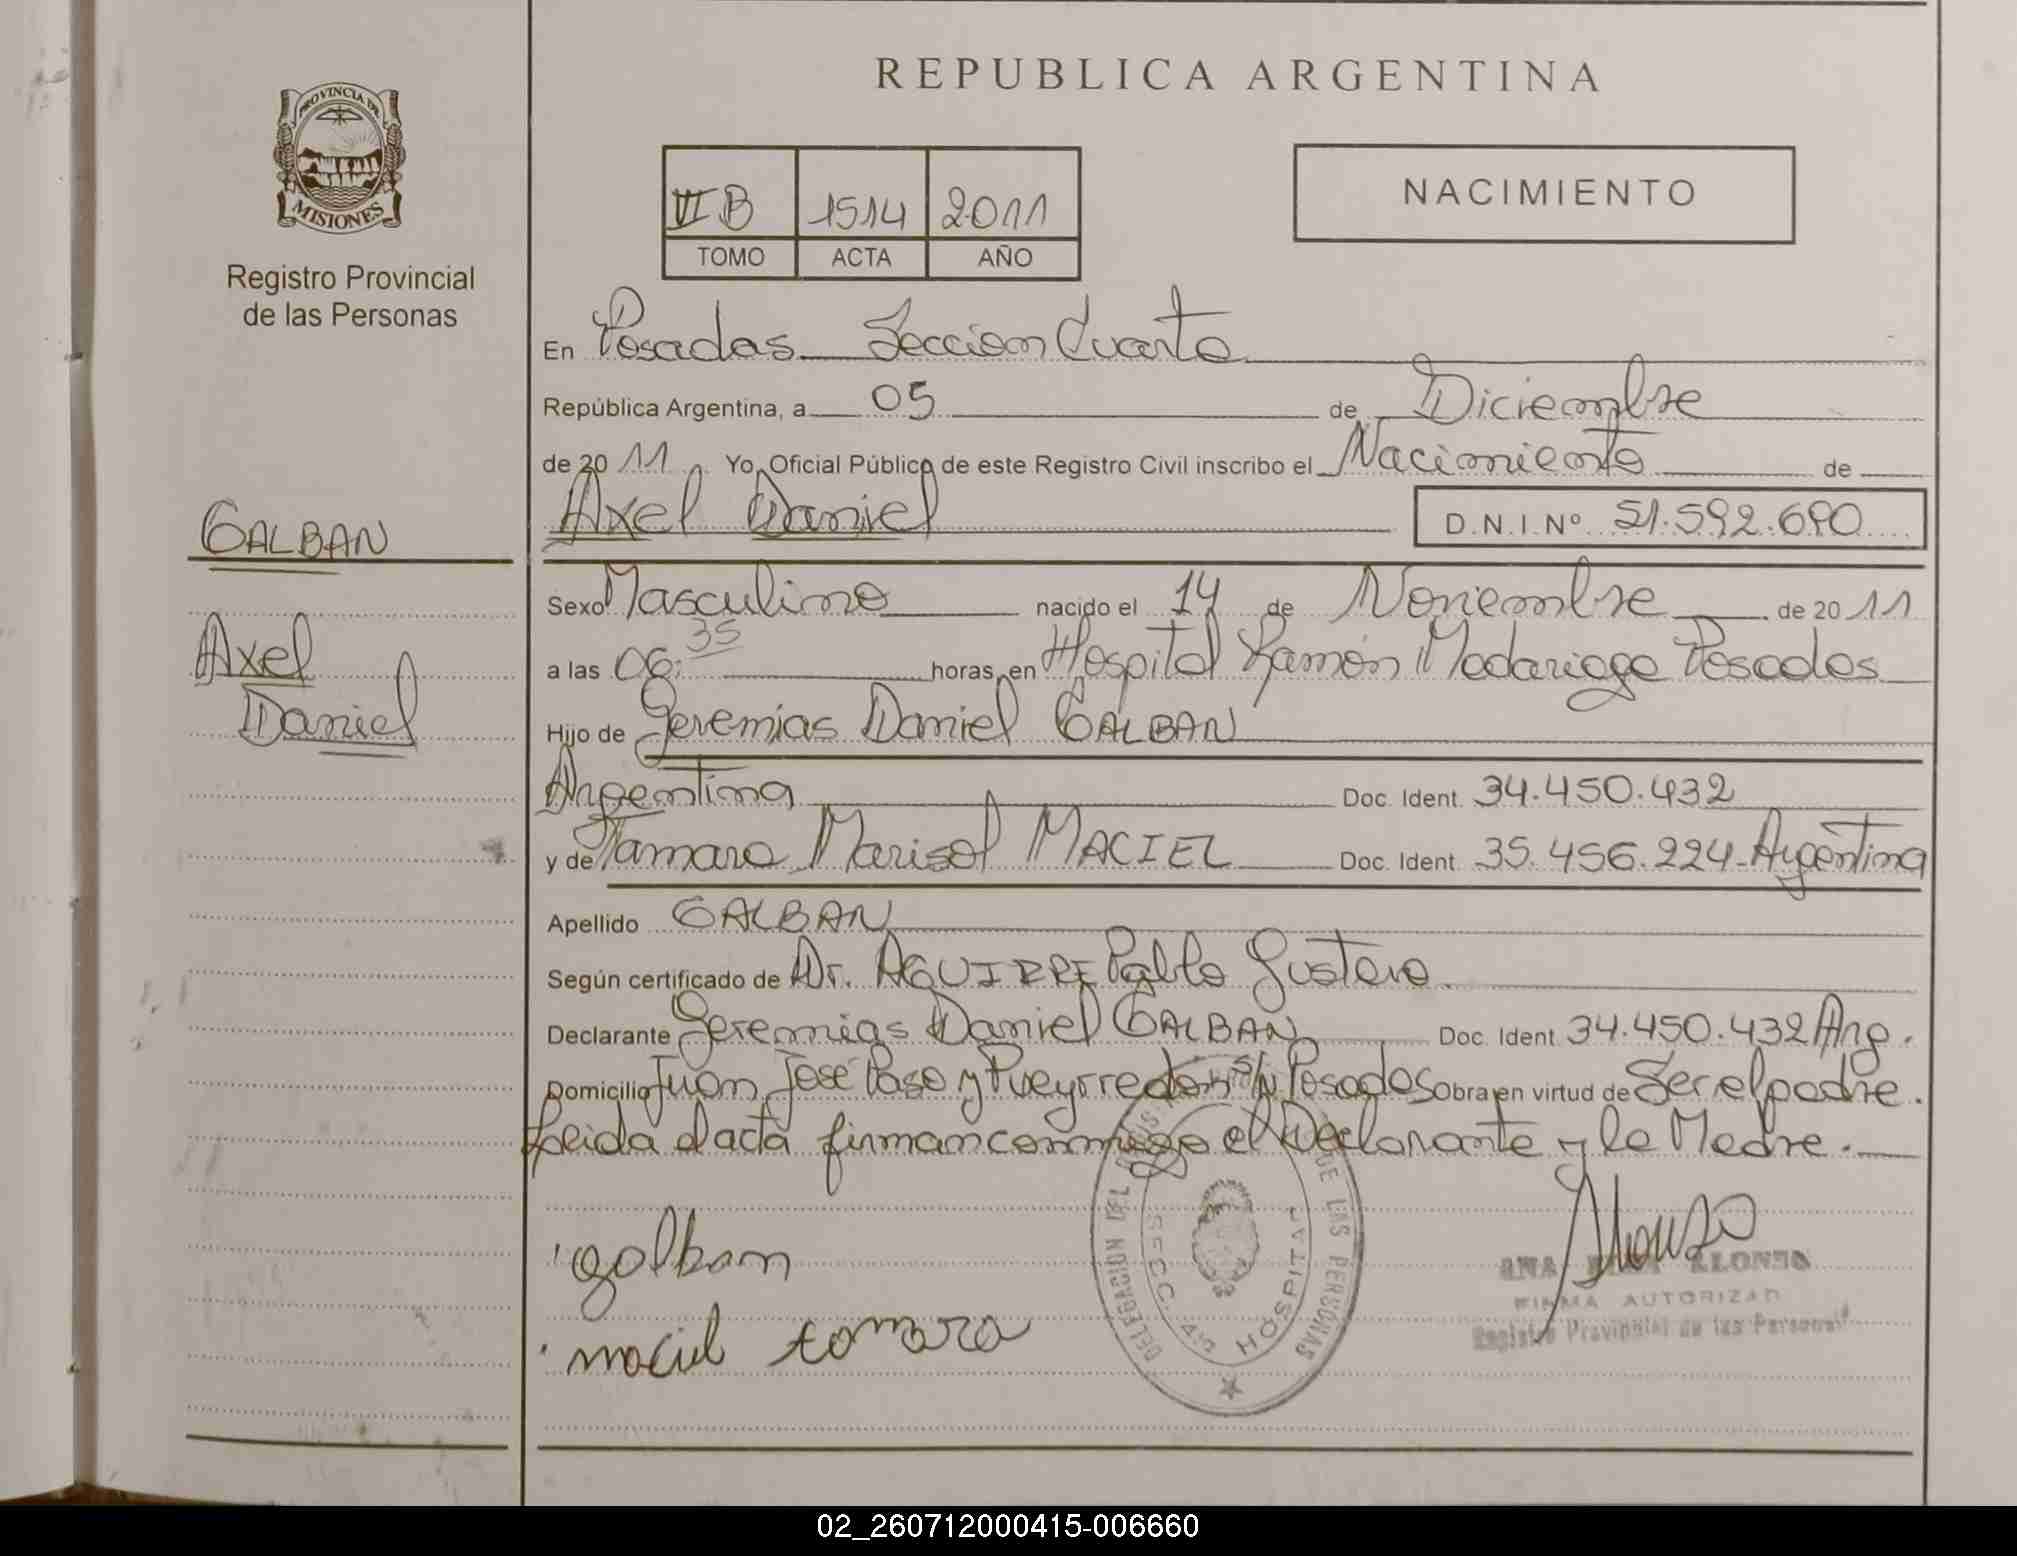 PROVINCIA DE
MISIONES
Registro Provincial
de las Personas
GALBAN
Axel
Daniel
REPUBLICA ARGENTINA
VI B 1514 2011
TOMO ACTA AÑO
NACIMIENTO
En Posadas Seccion Cuarta
República Argentina, a 05 de Diciembre
de 2011 Yo, Oficial Público de este Registro Civil inscribo el Nacimiento de
Axel Daniel D.N.I.Nº 51.592.690
Sexo Masculino nacido el 14 de Noviembre de 2011
a las 06:35 horas, en Hospital Ramón Madariaga Posadas
Hijo de Jeremias Daniel GALBAN
Argentina Doc. Ident. 34.450.432
y de Tamara Marisol MACIEL Doc. Ident. 35.456.224-Argentina
Apellido GALBAN
Según certificado de Dr. AGUIRRE Pablo Gustavo
Declarante Jeremias Daniel GALBAN Doc. Ident 34.450.432 Arg.
Domicilio Juan José Paso y Pueyrredon s/n Posadas Obra en virtud de Ser el padre.
Leida el acta firman conmigo el Declarante y la Madre.
galban
maciel tamara
DELEGACION DEL DE LAS PERSONAS
SECC. 4º HOSPITAL
Alonso
ANA ALONSO
FIRMA AUTORIZAD
Registro Provincial de las Personas
02_260712000415-006660